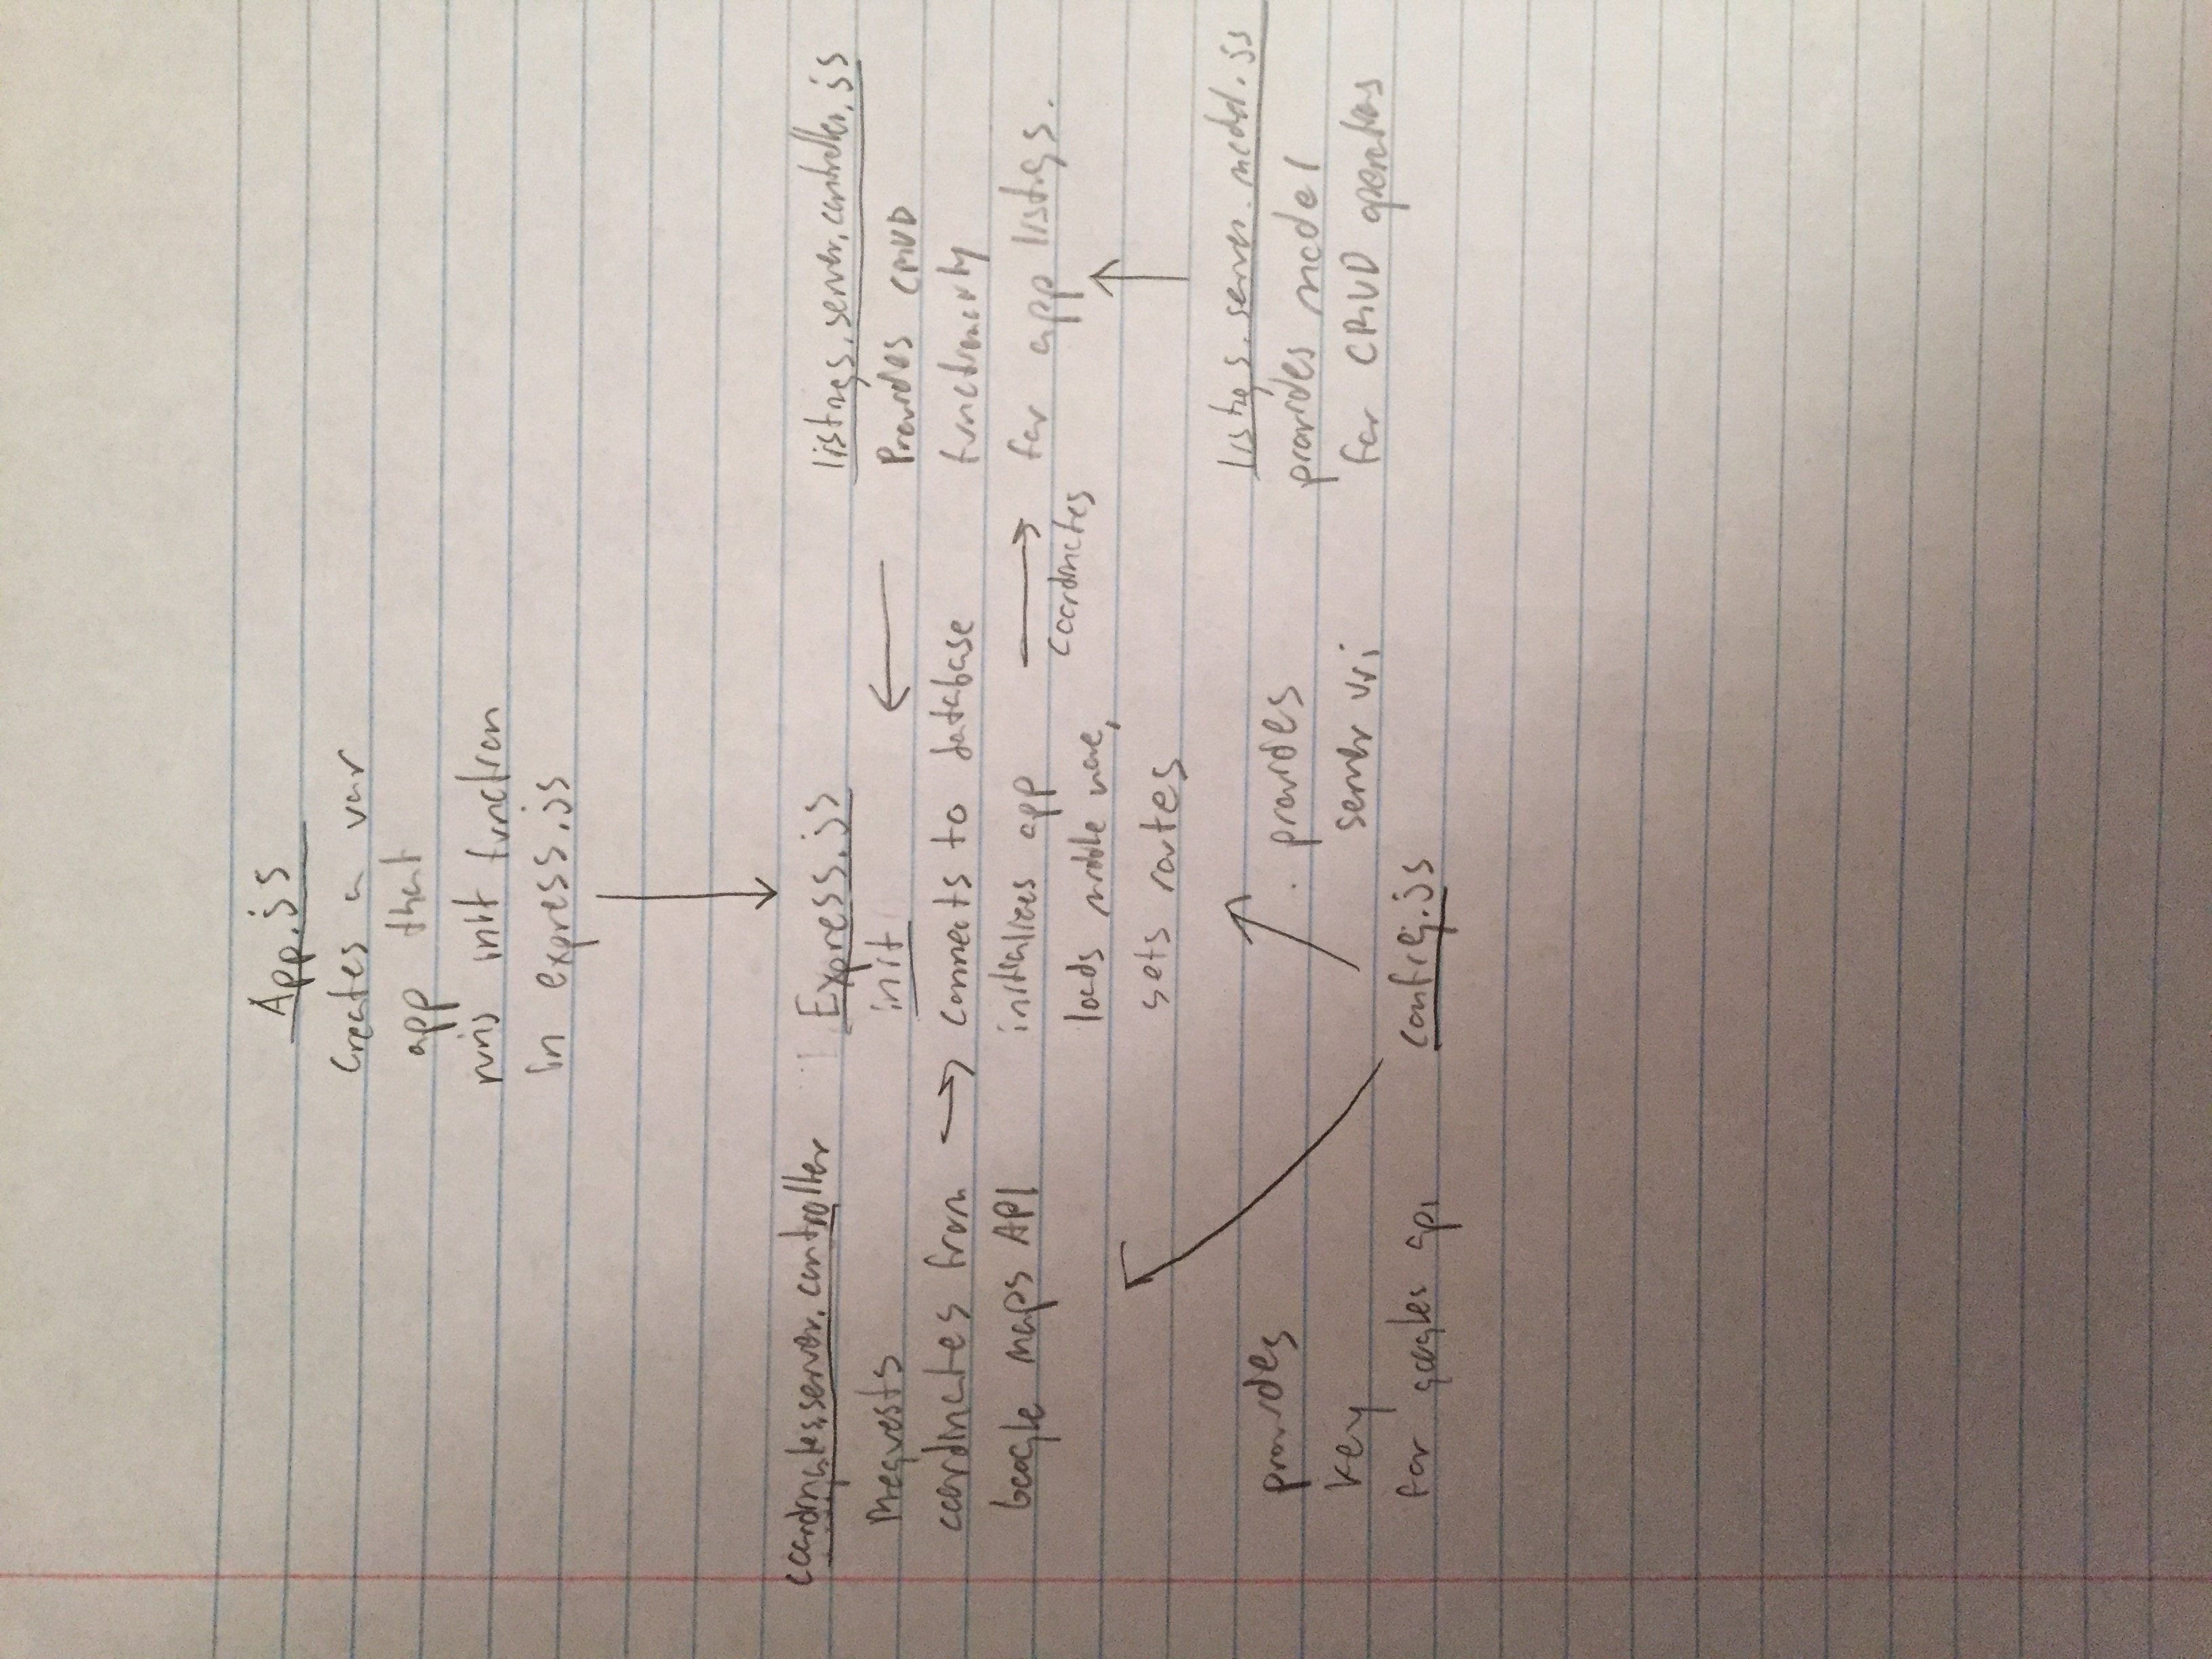 App.js
Creates a var
app that
runs init function
in express.js
coordinates.server.controller
Requests
coordinates from
Google maps API
Express.js
init
connects to database
initializes app
loads middle ware,
sets routes
coordinates
listings.server.controller.js
Provides CRUD
functionality
for app listings.
listings.server.model.js
provides model
for CRUD operations
provides
key
for googles api
provides
server uri
config.js